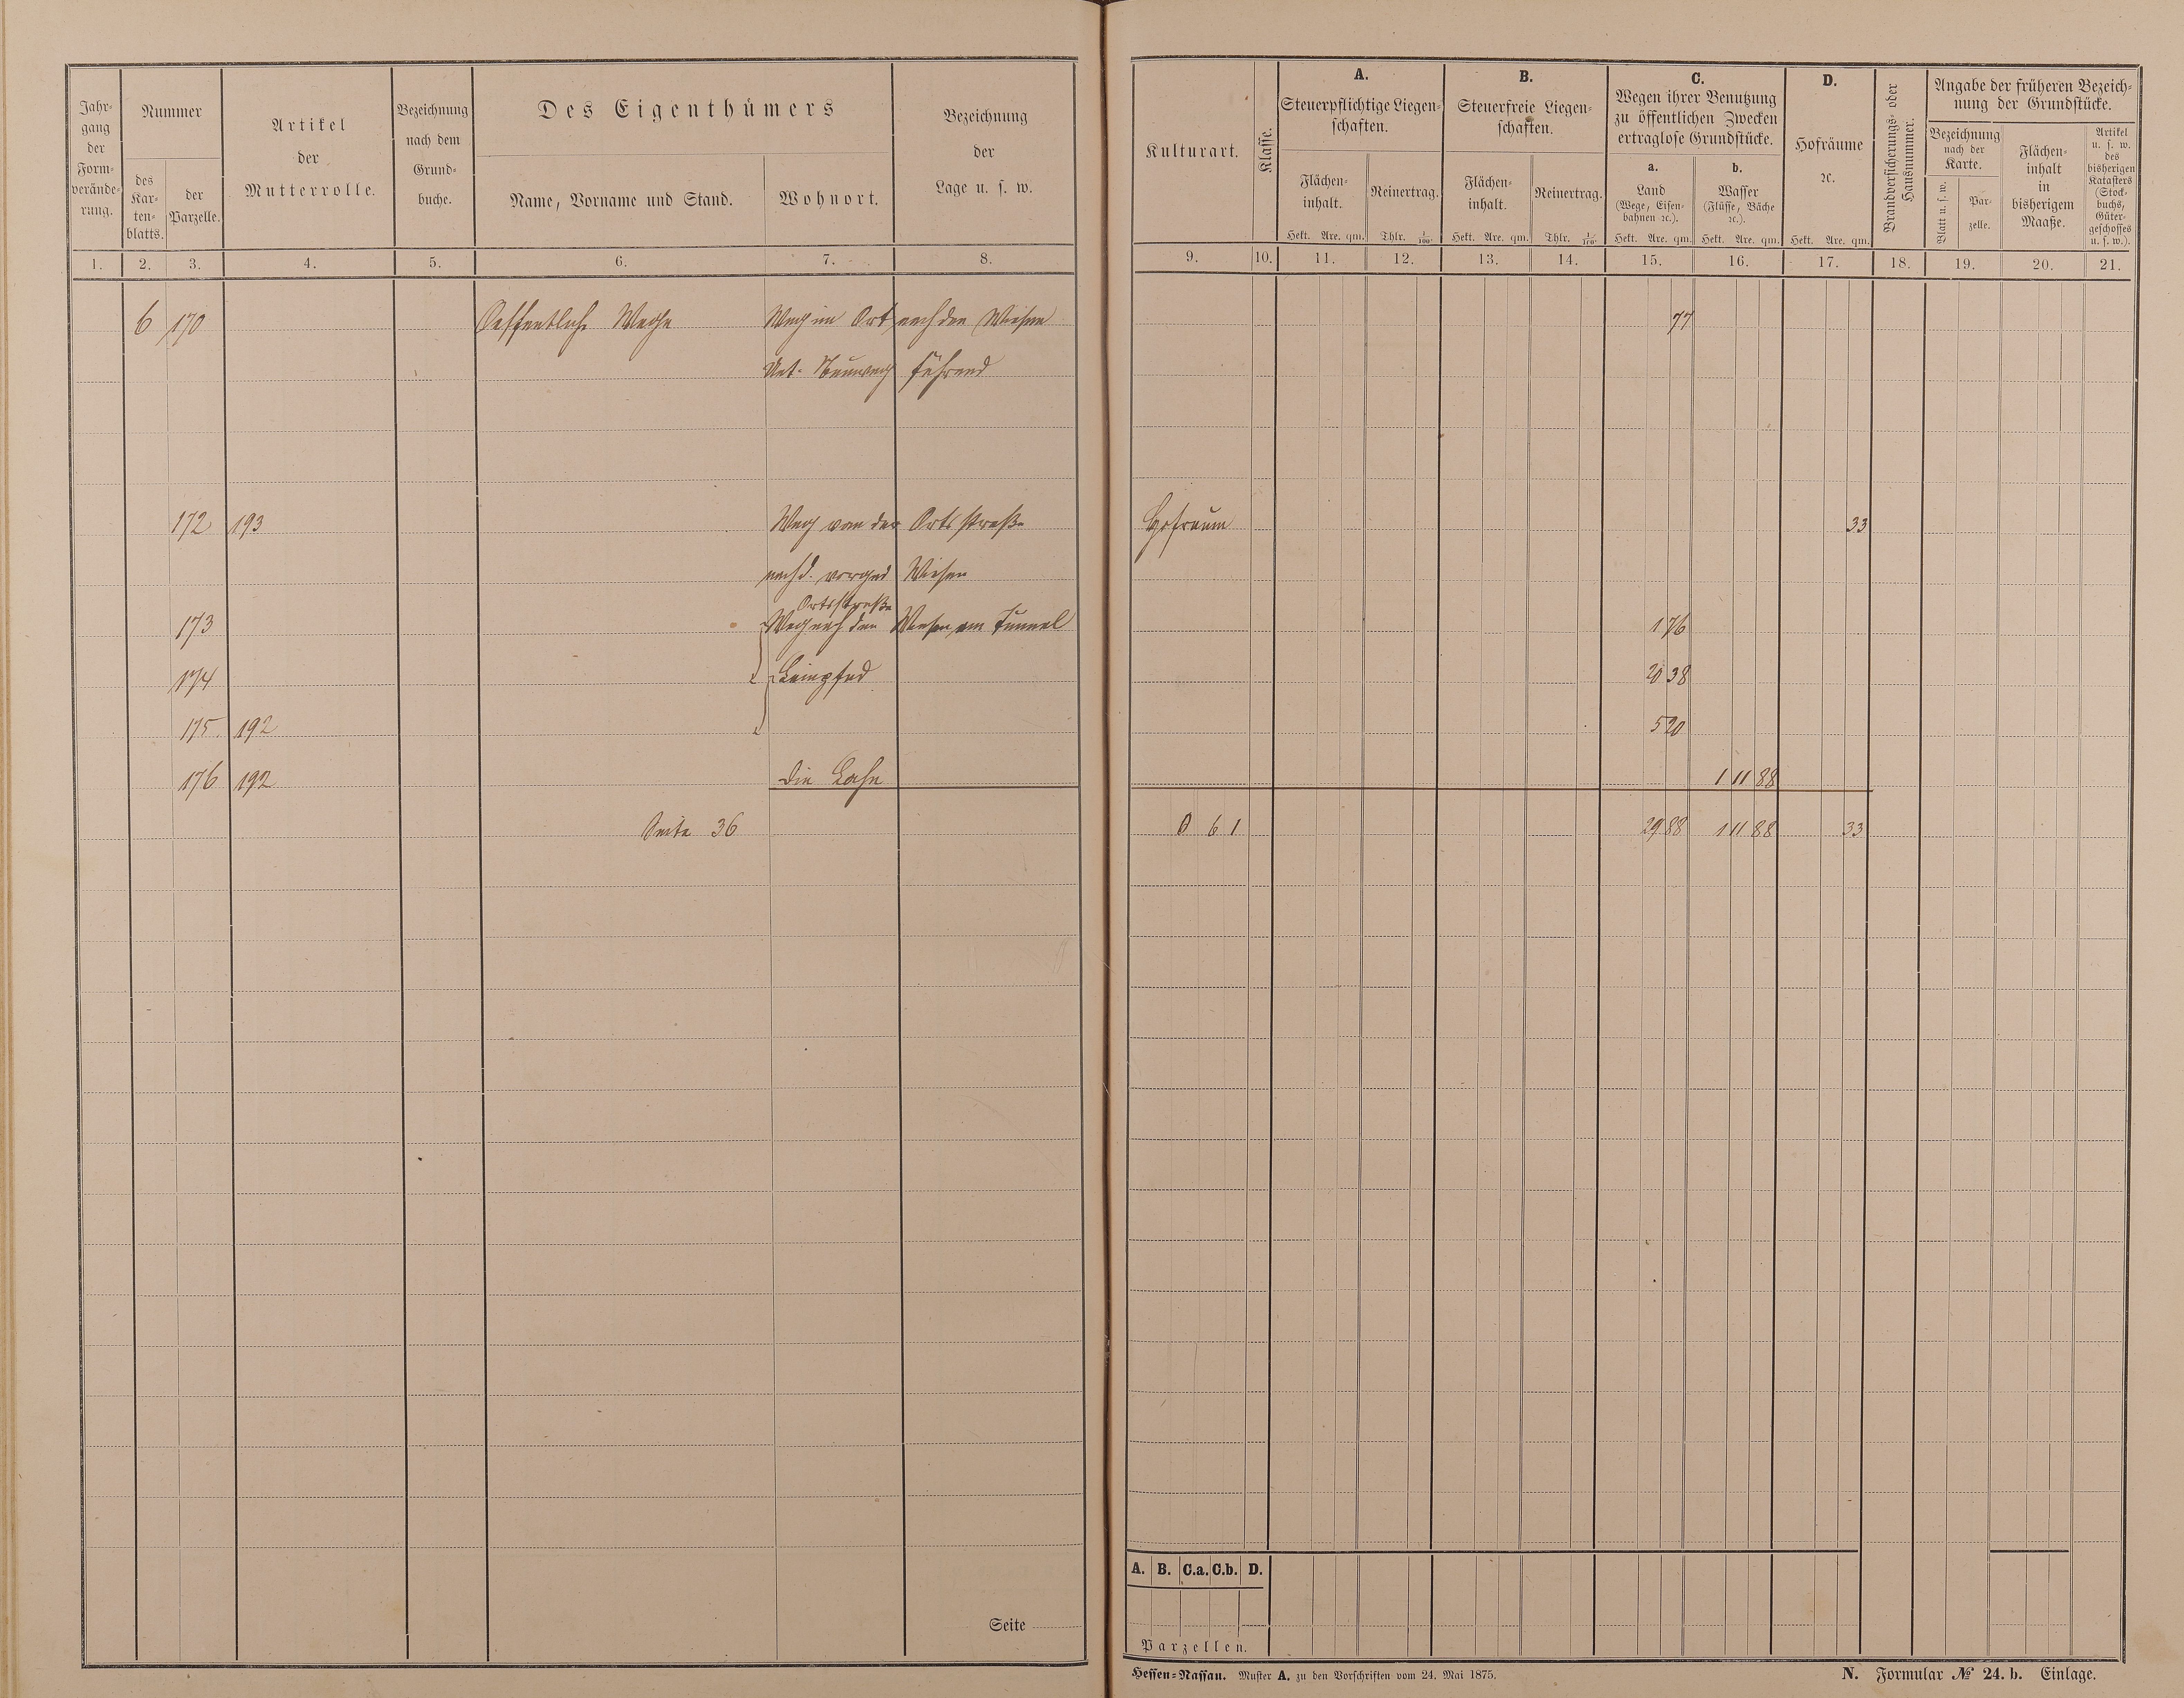 Jahr-
gang
der
Form-
verände-
rung.
Nummer
des
Kar-
ten-
blatts.
der
Parzelle.
Artikel
der
Mutterrolle.
Bezeichnung
nach dem
Grund-
buche.
Des Eigenthümers
Name, Vorname und Stand.
Wohnort.
Bezeichnung
der
Lage u. s. w.
Kulturart.
Klasse.
A.
Steuerpflichtige Liegen-
schaften.
Flächen-
inhalt.
Hekt. Are. qm.
Reinertrag.
Thlr. 1/100.
B.
Steuerfreie Liegen-
schaften.
Flächen-
inhalt.
Hekt. Are. qm.
Reinertrag.
Thlr. 1/100.
C.
Wegen ihrer Benutzung
zu öffentlichen Zwecken
ertraglose Grundstücke.
a.
Land
(Wege, Eisen-
bahnen ꝛc.).
Hekt. Are. qm.
b.
Wasser
(Flüsse, Bäche
ꝛc.).
Hekt. Are. qm.
D.
Hofräume
ꝛc.
Hekt. Are. qm.
Brandversicherungs- oder
Hausnummer.
Angabe der früheren Bezeich-
nung der Grundstücke.
Bezeichnung
nach der
Karte.
Blatt u. s. w.
Par-
zelle.
Flächen-
inhalt
in
bisherigem
Maaße.
Artikel
u. s. w.
des
bisherigen
Katasters
(Stock-
buchs,
Güter-
geschosses
u. s. w.).
1. 2. 3. 4. 5. 6. 7. 8. 9. 10. 11. 12. 13. 14. 15. 16. 17. 18. 19. 20. 21.
6 170 Oeffentliche Wege Weg im Ort nach den Wiesen 77
führend
172 193 Weg von der Ortsstraße Hofraum 33
nach d. Wiesen
Ortsstraße
173 Weg nach den Wiesen am Tunnel 1 76
174 Leinpfad 20 38
175 192 5 20
176 192 die Lahn 1 11 88
Seite 36 0 6 1 29 88 1 11 88 33
A. B. C.a. C.b. D.
Parzellen.
Seite
Hessen-Nassau. Muster A. zu den Vorschriften vom 24. Mai 1875.
N. Formular № 24. b. Einlage.